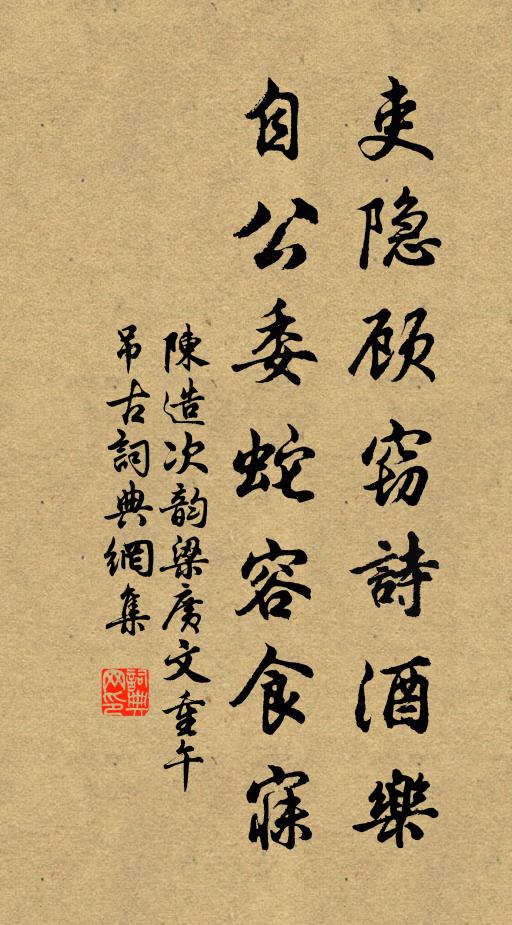 吏隐顾窃詩酒樂
自公委蛇容食寐
陳造次韵梁广文重午
吊古詞典網集
詞典网印